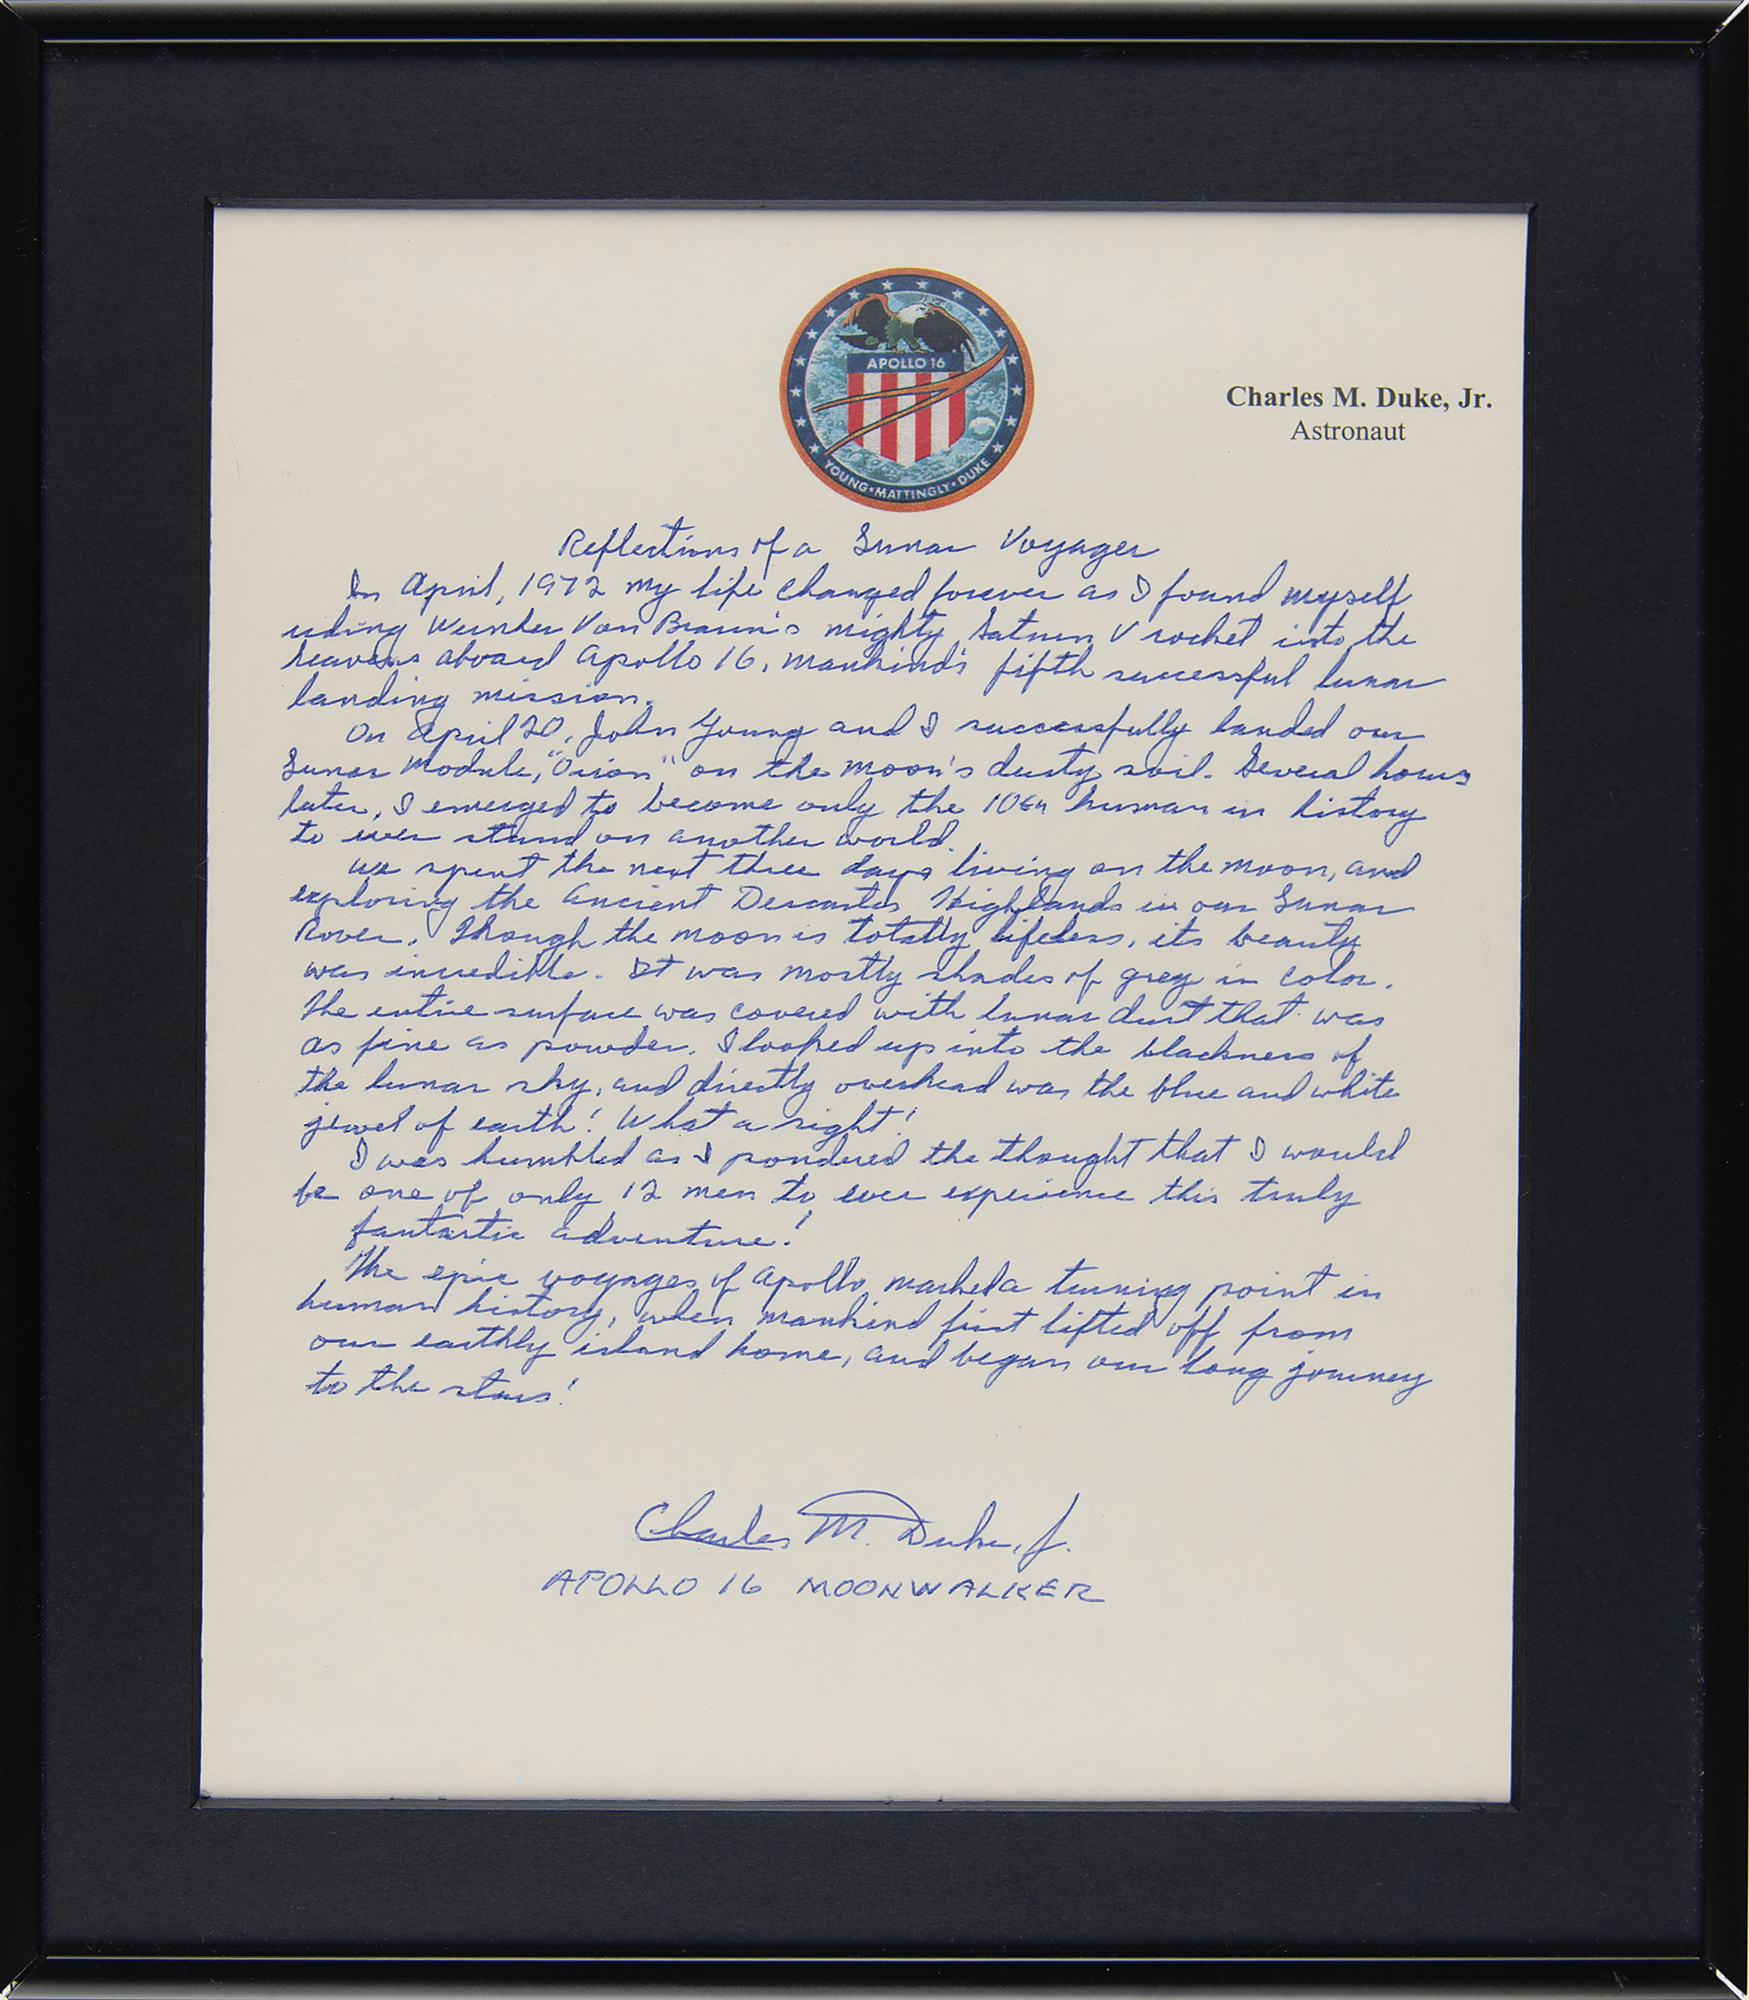 APOLLO 16
YOUNG • MATTINGLY • DUKE
Charles M. Duke, Jr.
Astronaut
Reflections of a Lunar Voyager
In April, 1972 my life changed forever as I found myself
riding Wernher Von Braun's mighty Saturn V rocket into the
heavens aboard Apollo 16, mankind's fifth successful lunar
landing mission.
On April 20, John Young and I successfully landed our
Lunar Module, "Orion" on the moon's dusty soil. Several hours
later, I emerged to become only the 10th human in history
to ever stand on another world.
We spent the next three days living on the moon, and
exploring the ancient Descartes Highlands in our Lunar
Rover. Though the moon is totally lifeless, its beauty
was incredible. It was mostly shades of grey in color.
The entire surface was covered with lunar dust that was
as fine as powder. I looked up into the blackness of
the lunar sky, and directly overhead was the blue and white
jewel of earth! What a sight!
I was humbled as I pondered the thought that I would
be one of only 12 men to ever experience this truly
fantastic adventure!
The epic voyages of Apollo marked a turning point in
human history, when mankind first lifted off from
our earthly island home, and began our long journey
to the stars!
Charles M. Duke, Jr.
APOLLO 16 MOONWALKER